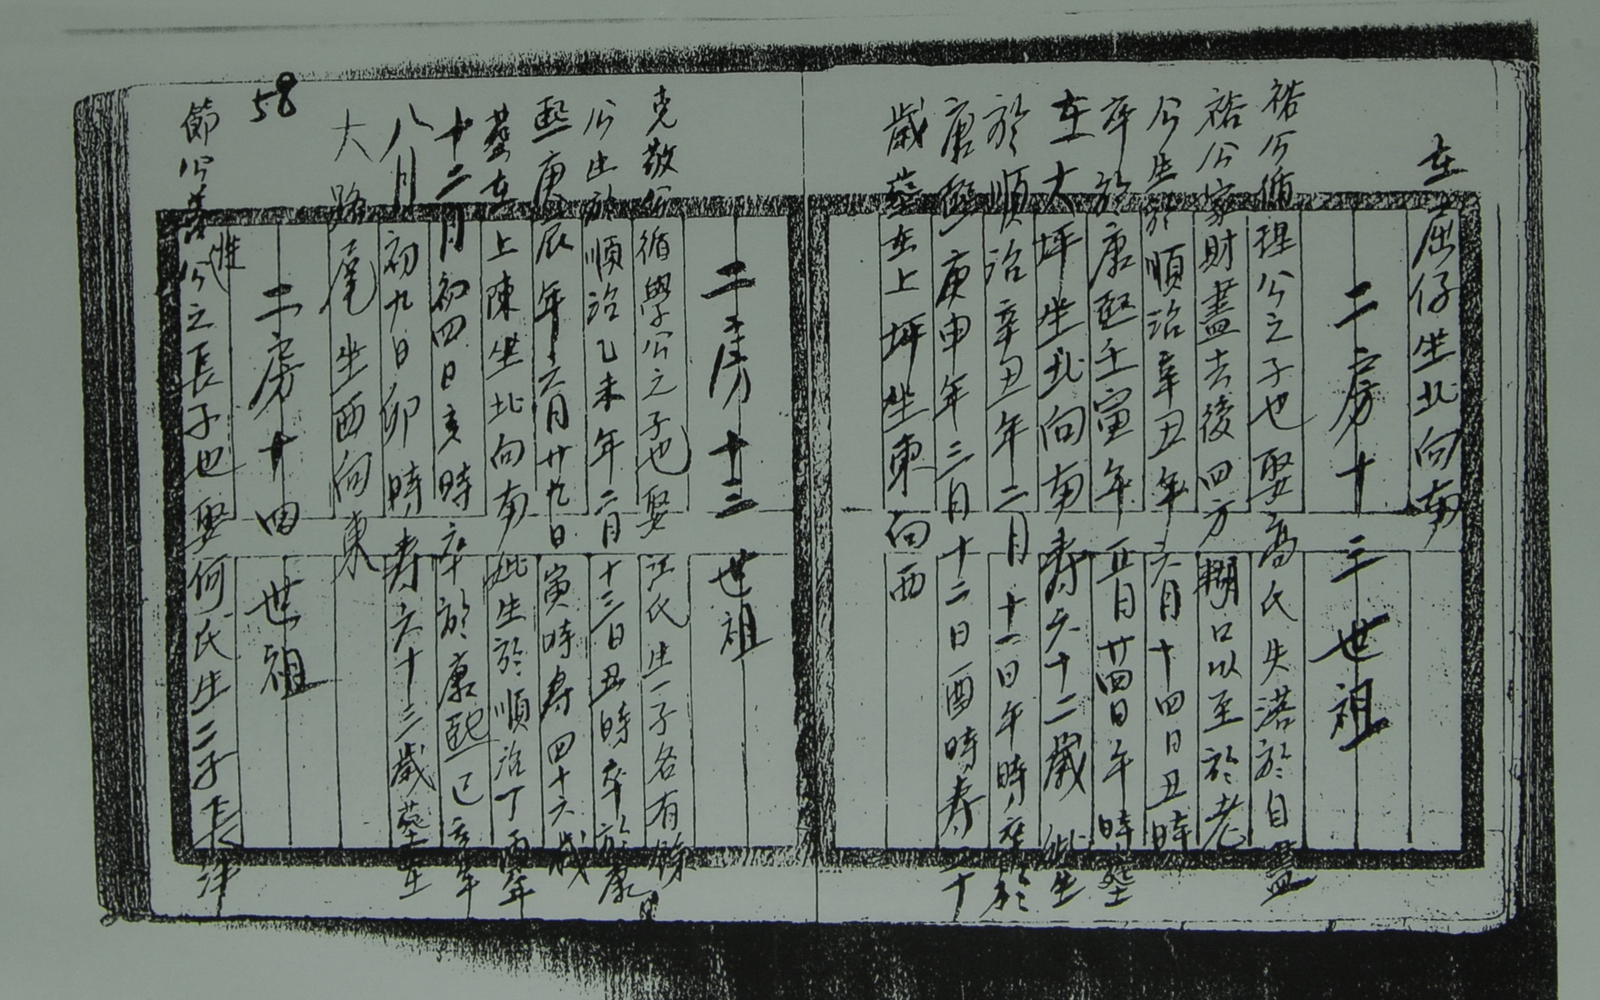 在屈仔坐北向南
二房十三世祖
裕公循理公之子也娶高氏失落於自葬
裕公家財盡去後四方糊口以至於老
公生於順治辛丑年六月十四日丑時
卒於康熙壬寅年五月廿四日午時葬
在大坪坐北向南壽六十二歲妣生
於順治辛丑年二月十一日午時卒於
康熙庚申年三月十二日酉時壽二十
歲葬在上坪坐東向西
二房十三世祖
克敬公循學公之子也娶江氏生一子名有餘
公生於順治乙未年二月十三日丑時卒於康
熙庚辰年六月廿九日寅時壽四十六歲
葬在上陳坐北向南妣生於順治丁酉年
十二月初四日亥時卒於康熙己亥年
八月初九日卯時壽六十三歲葬在
大路尾坐西向東
58
二房十四世祖
節公惟公之長子也娶何氏生二子長